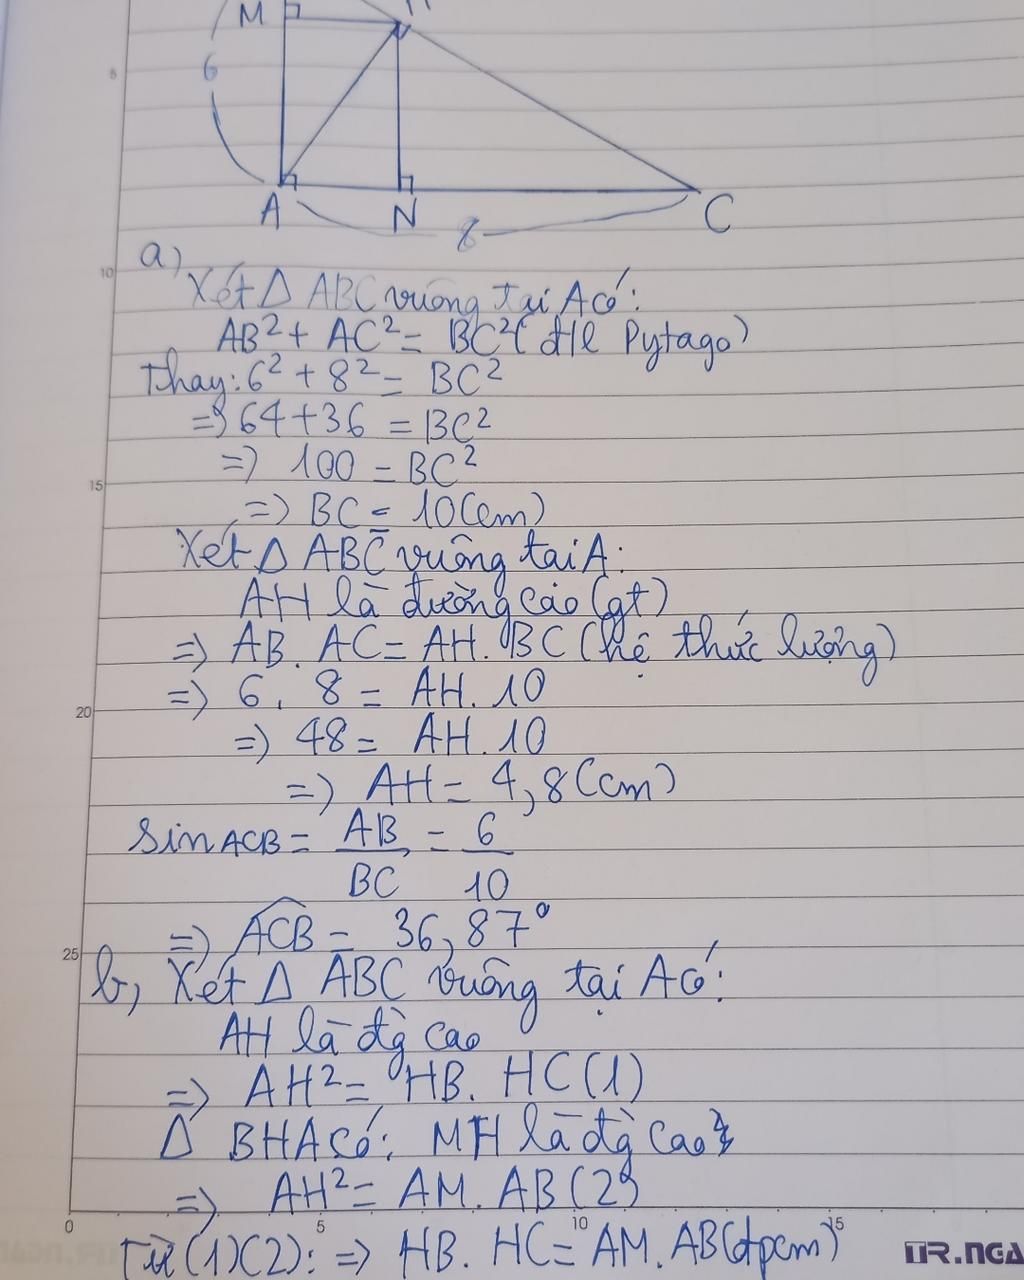 M
6
A N C
8
a)
Xét Δ ABC vuông tại A có:
AB² + AC² = BC² (đ/l Pytago)
Thay: 6² + 8² = BC²
=> 64 + 36 = BC²
=> 100 = BC²
=> BC = 10 (cm)
Xét Δ ABC vuông tại A:
AH là đường cao (gt)
=> AB. AC = AH. BC (hệ thức lượng)
=> 6. 8 = AH. 10
=> 48 = AH. 10
=> AH = 4,8 (cm)
Sin ACB = AB/BC = 6/10
=> ACB = 36,87°
b, Xét Δ ABC vuông tại A có:
AH là đg cao
=> AH² = HB. HC (1)
Δ BHA có: MH là đg cao
=> AH² = AM. AB (2)
Từ (1) (2): => HB. HC = AM. AB (đpcm)
5
10
15
20
25
0 5 10 15
TR.NGA